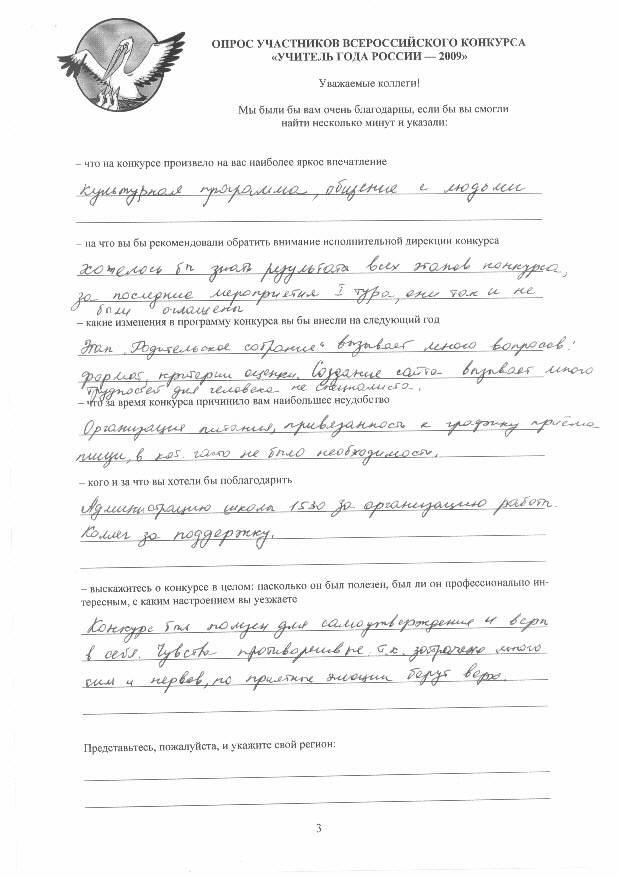 ОПРОС УЧАСТНИКОВ ВСЕРОССИЙСКОГО КОНКУРСА
«УЧИТЕЛЬ ГОДА РОССИИ — 2009»
Уважаемые коллеги!
Мы были бы вам очень благодарны, если бы вы смогли
найти несколько минут и указали:
– что на конкурсе произвело на вас наиболее яркое впечатление
культурная программа, общение с людьми
– на что вы бы рекомендовали обратить внимание исполнительной дирекции конкурса
Хотелось бы знать результаты всех этапов конкурса,
за последние мероприятия I тура, они так и не
были оглашены
– какие изменения в программу конкурса вы бы внесли на следующий год
Этап „Родительское собрание“ вызывает много вопросов:
формат, критерии оценки. Создание сайта вызывает много
трудностей для человека не специалиста.
– что за время конкурса причинило вам наибольшее неудобство
Организация питания, привязанность к графику приёма
пищи, в кот. часто не было необходимости.
– кого и за что вы хотели бы поблагодарить
Администрацию школы 1530 за организацию работы.
Коллег за поддержку.
– выскажитесь о конкурсе в целом: насколько он был полезен, был ли он профессионально ин-
тересным, с каким настроением вы уезжаете
Конкурс был полезен для самоутверждения и веры
в себя. Чувства противоречивые т.к. затрачено много
сил и нервов, но приятные эмоции берут верх.
Представьтесь, пожалуйста, и укажите свой регион:
3